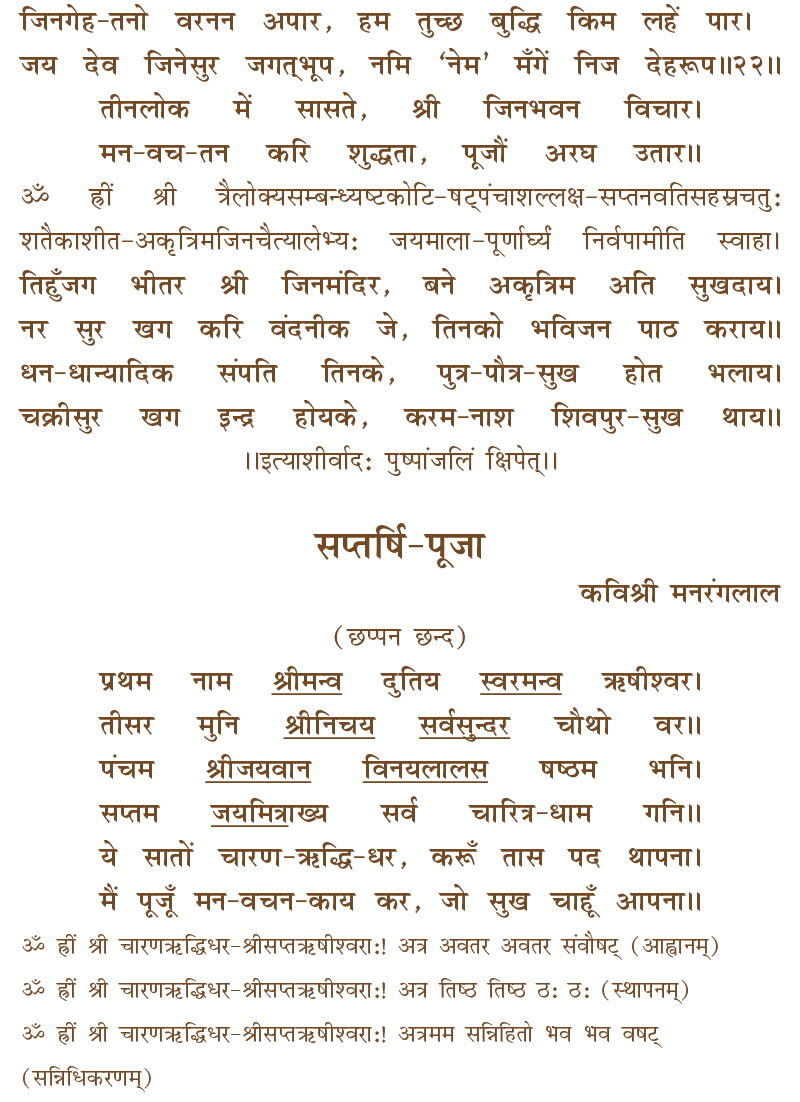 जिनगेह-तनो वरनन अपार, हम तुच्छ बुद्धि किम लहें पार।
जय देव जिनेसुर जगत्‌भूप, नमि ‘नेम’ मँगें निज देहरूप॥२२॥
तीनलोक में सासते, श्री जिनभवन विचार।
मन-वच-तन करि शुद्धता, पूजौं अरघ उतार॥
ॐ ह्रीं श्री त्रैलोक्यसम्बन्ध्यष्टकोटि-षट्पंचाशल्लक्ष-सप्तनवतिसहस्रचतु:
शतैकाशीत-अकृत्रिमजिनचैत्यालेभ्य: जयमाला-पूर्णार्घ्यं निर्वपामीति स्वाहा।
तिहुँजग भीतर श्री जिनमंदिर, बने अकृत्रिम अति सुखदाय।
नर सुर खग करि वंदनीक जे, तिनको भविजन पाठ कराय॥
धन-धान्यादिक संपति तिनके, पुत्र-पौत्र-सुख होत भलाय।
चक्रीसुर खग इन्द्र होयके, करम-नाश शिवपुर-सुख थाय॥
॥इत्याशीर्वाद: पुष्पांजलिं क्षिपेत्॥
सप्तर्षि-पूजा
कविश्री मनरंगलाल
(छप्पन छन्द)
प्रथम नाम श्रीमन्व दुतिय स्वरमन्व ऋषीश्वर।
तीसर मुनि श्रीनिचय सर्वसुन्दर चौथो वर॥
पंचम श्रीजयवान विनयलालस षष्ठम भनि।
सप्तम जयमित्राख्य सर्व चारित्र-धाम गनि॥
ये सातों चारण-ऋद्धि-धर, करूँ तास पद थापना।
मैं पूजूँ मन-वचन-काय कर, जो सुख चाहूँ आपना॥
ॐ ह्रीं श्री चारणऋद्धिधर-श्रीसप्तऋषीश्वरा:! अत्र अवतर अवतर संवौषट् (आह्वानम्)
ॐ ह्रीं श्री चारणऋद्धिधर-श्रीसप्तऋषीश्वरा:! अत्र तिष्ठ तिष्ठ ठ: ठ: (स्थापनम्)
ॐ ह्रीं श्री चारणऋद्धिधर-श्रीसप्तऋषीश्वरा:! अत्रमम सन्निहितो भव भव वषट्
(सन्निधिकरणम्)